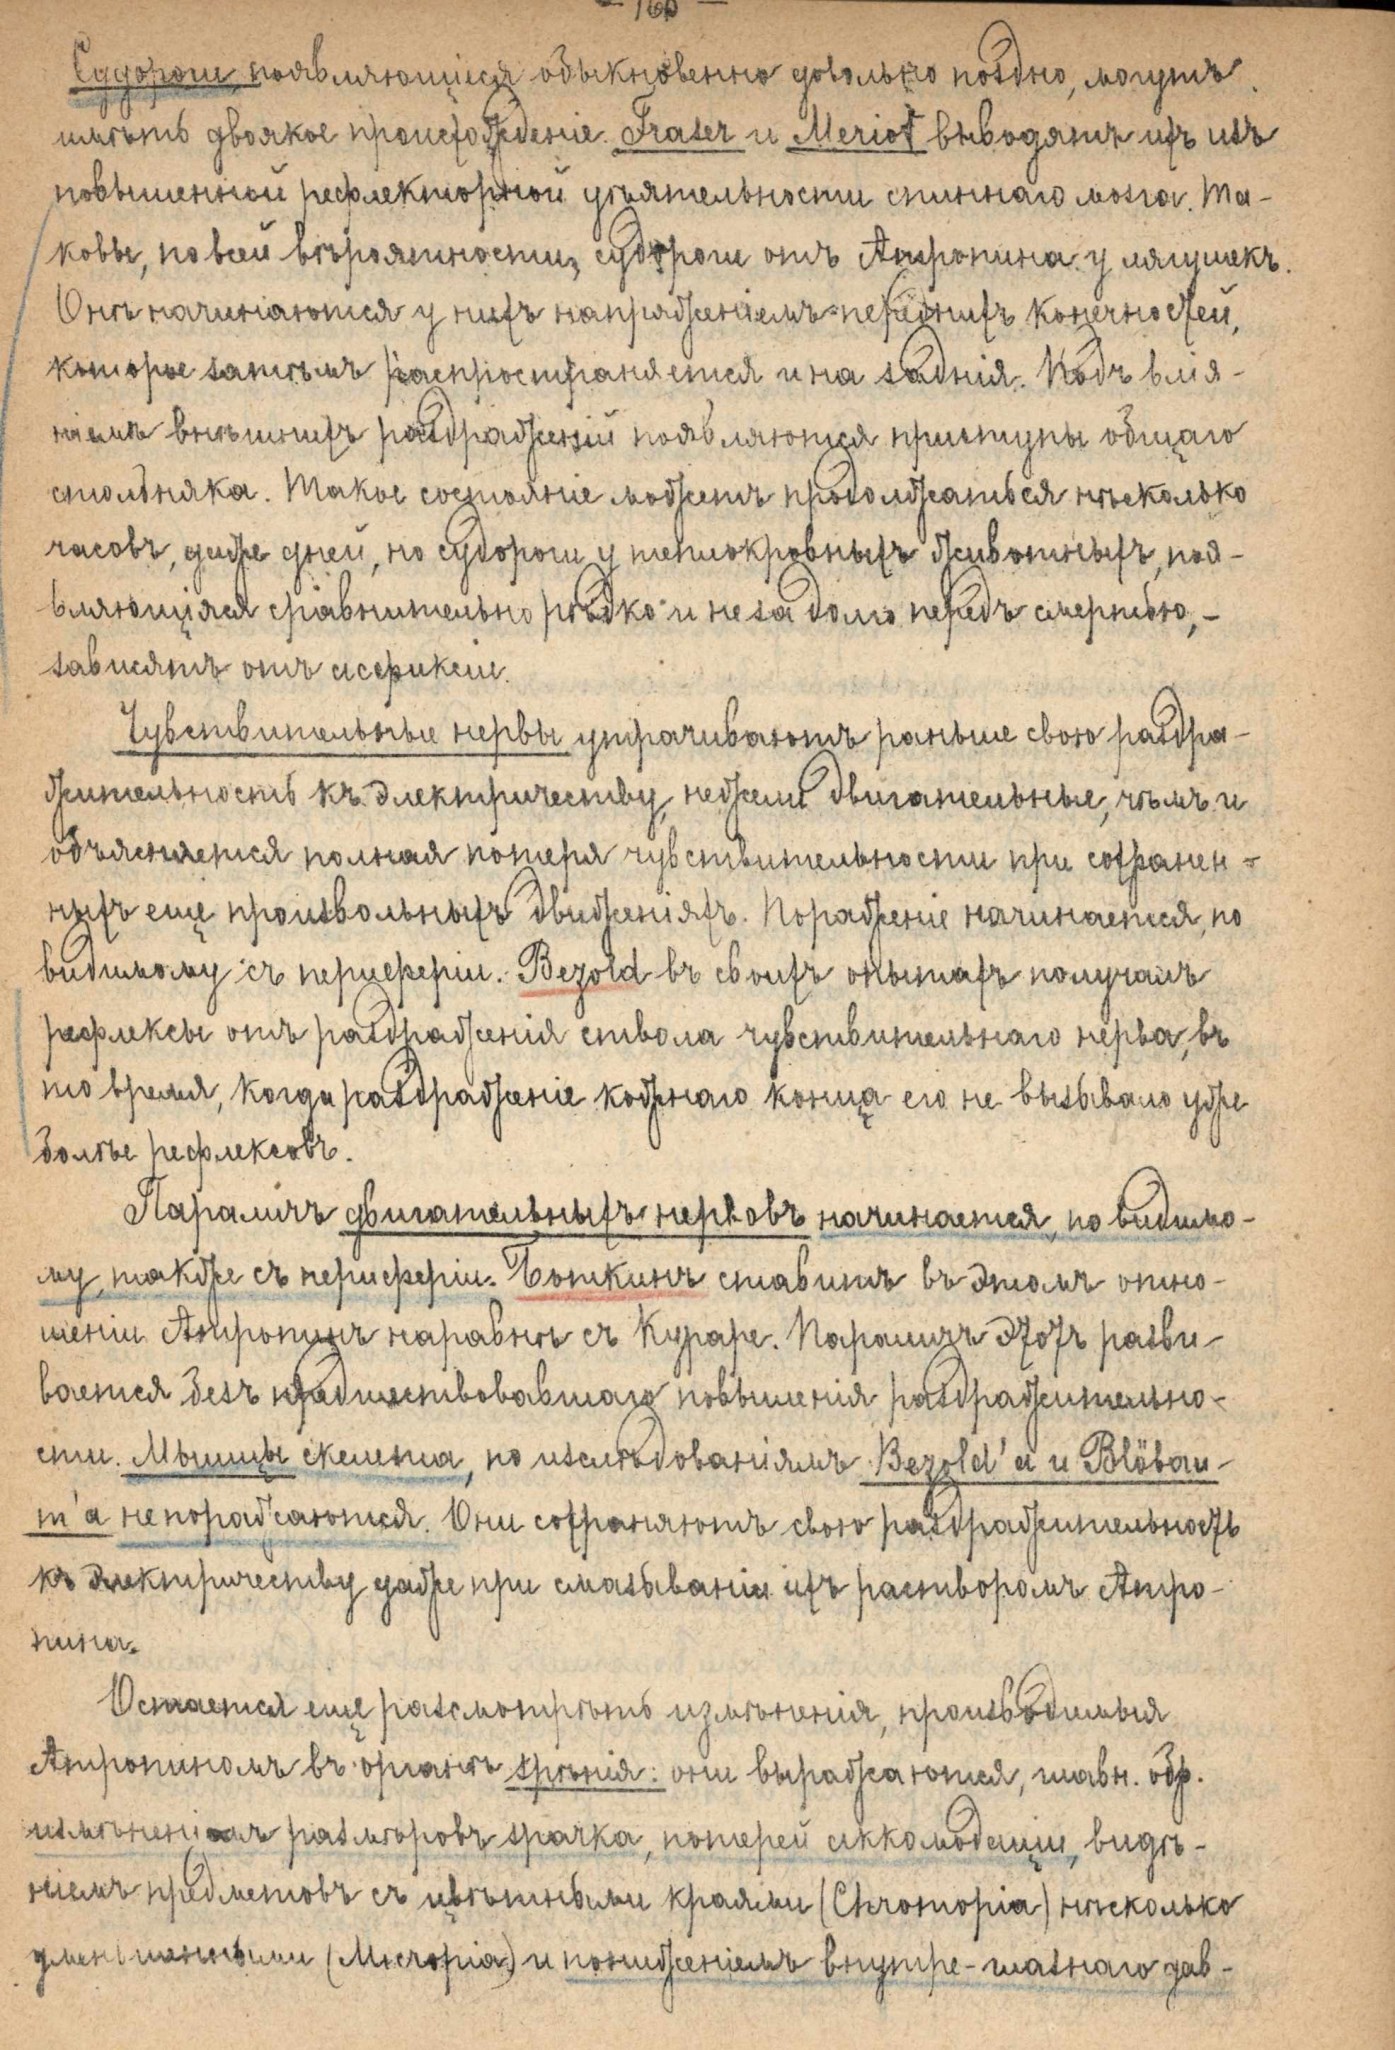 – 160 –
Судороги, появляющіеся обыкновенно довольно поздно, могутъ
имѣть двоякое происхожденіе. Fraser и Meriot выводятъ ихъ изъ
повышенной рефлекторной дѣятельности спиннаго мозга. Та-
ковы, по всей вѣроятности, судороги отъ Атропина у лягушекъ.
Онѣ начинаются у нихъ напряженіемъ переднихъ конечностей,
которое затѣмъ распространяется и на заднія. Подъ влія-
ніемъ внѣшнихъ раздраженій появляются приступы общаго
столбняка. Такое состояніе можетъ продолжаться нѣсколько
часовъ, даже дней, но судороги у теплокровныхъ животныхъ, поя-
вляющіяся сравнительно рѣдко и не за долго передъ смертью, –
зависятъ отъ асфиксіи.
Чувствительные нервы утрачиваютъ раньше свою раздра-
жительность къ электричеству, нежели двигательные, чѣмъ и
объясняется полная потеря чувствительности при сохранен-
ныхъ еще произвольныхъ движеніяхъ. Пораженіе начинается, по
видимому съ периферіи. Bezold въ своихъ опытахъ получалъ
рефлексы отъ раздраженія ствола чувствительнаго нерва, въ
то время, когда раздраженіе кожнаго конца его не вызывало уже
болѣе рефлексовъ.
Параличъ двигательныхъ нервовъ начинается, по видимо-
му, также съ периферіи. Боткинъ ставитъ въ этомъ отно-
шеніи Атропинъ наравнѣ съ Кураре. Параличъ этотъ разви-
вается безъ предшествовавшаго повышенія раздражительно-
сти. Мышцы скелета, по изслѣдованіямъ Bezold'а и Blöbau-
m'а не поражаются. Они сохраняютъ свою раздражительность
къ электричеству даже при смазываніи ихъ растворомъ Атро-
пина.
Остается еще разсмотрѣть измѣненія, производимыя
Атропиномъ въ органѣ зрѣнія: они выражаются, главн. обр.
измѣненіемъ размѣровъ зрачка, потерей аккомодаціи, видѣ-
ніемъ предметовъ съ цвѣтными краями (Chromopia) нѣсколько
уменьшенными (Micropia) и пониженіемъ внутре-глазнаго дав-